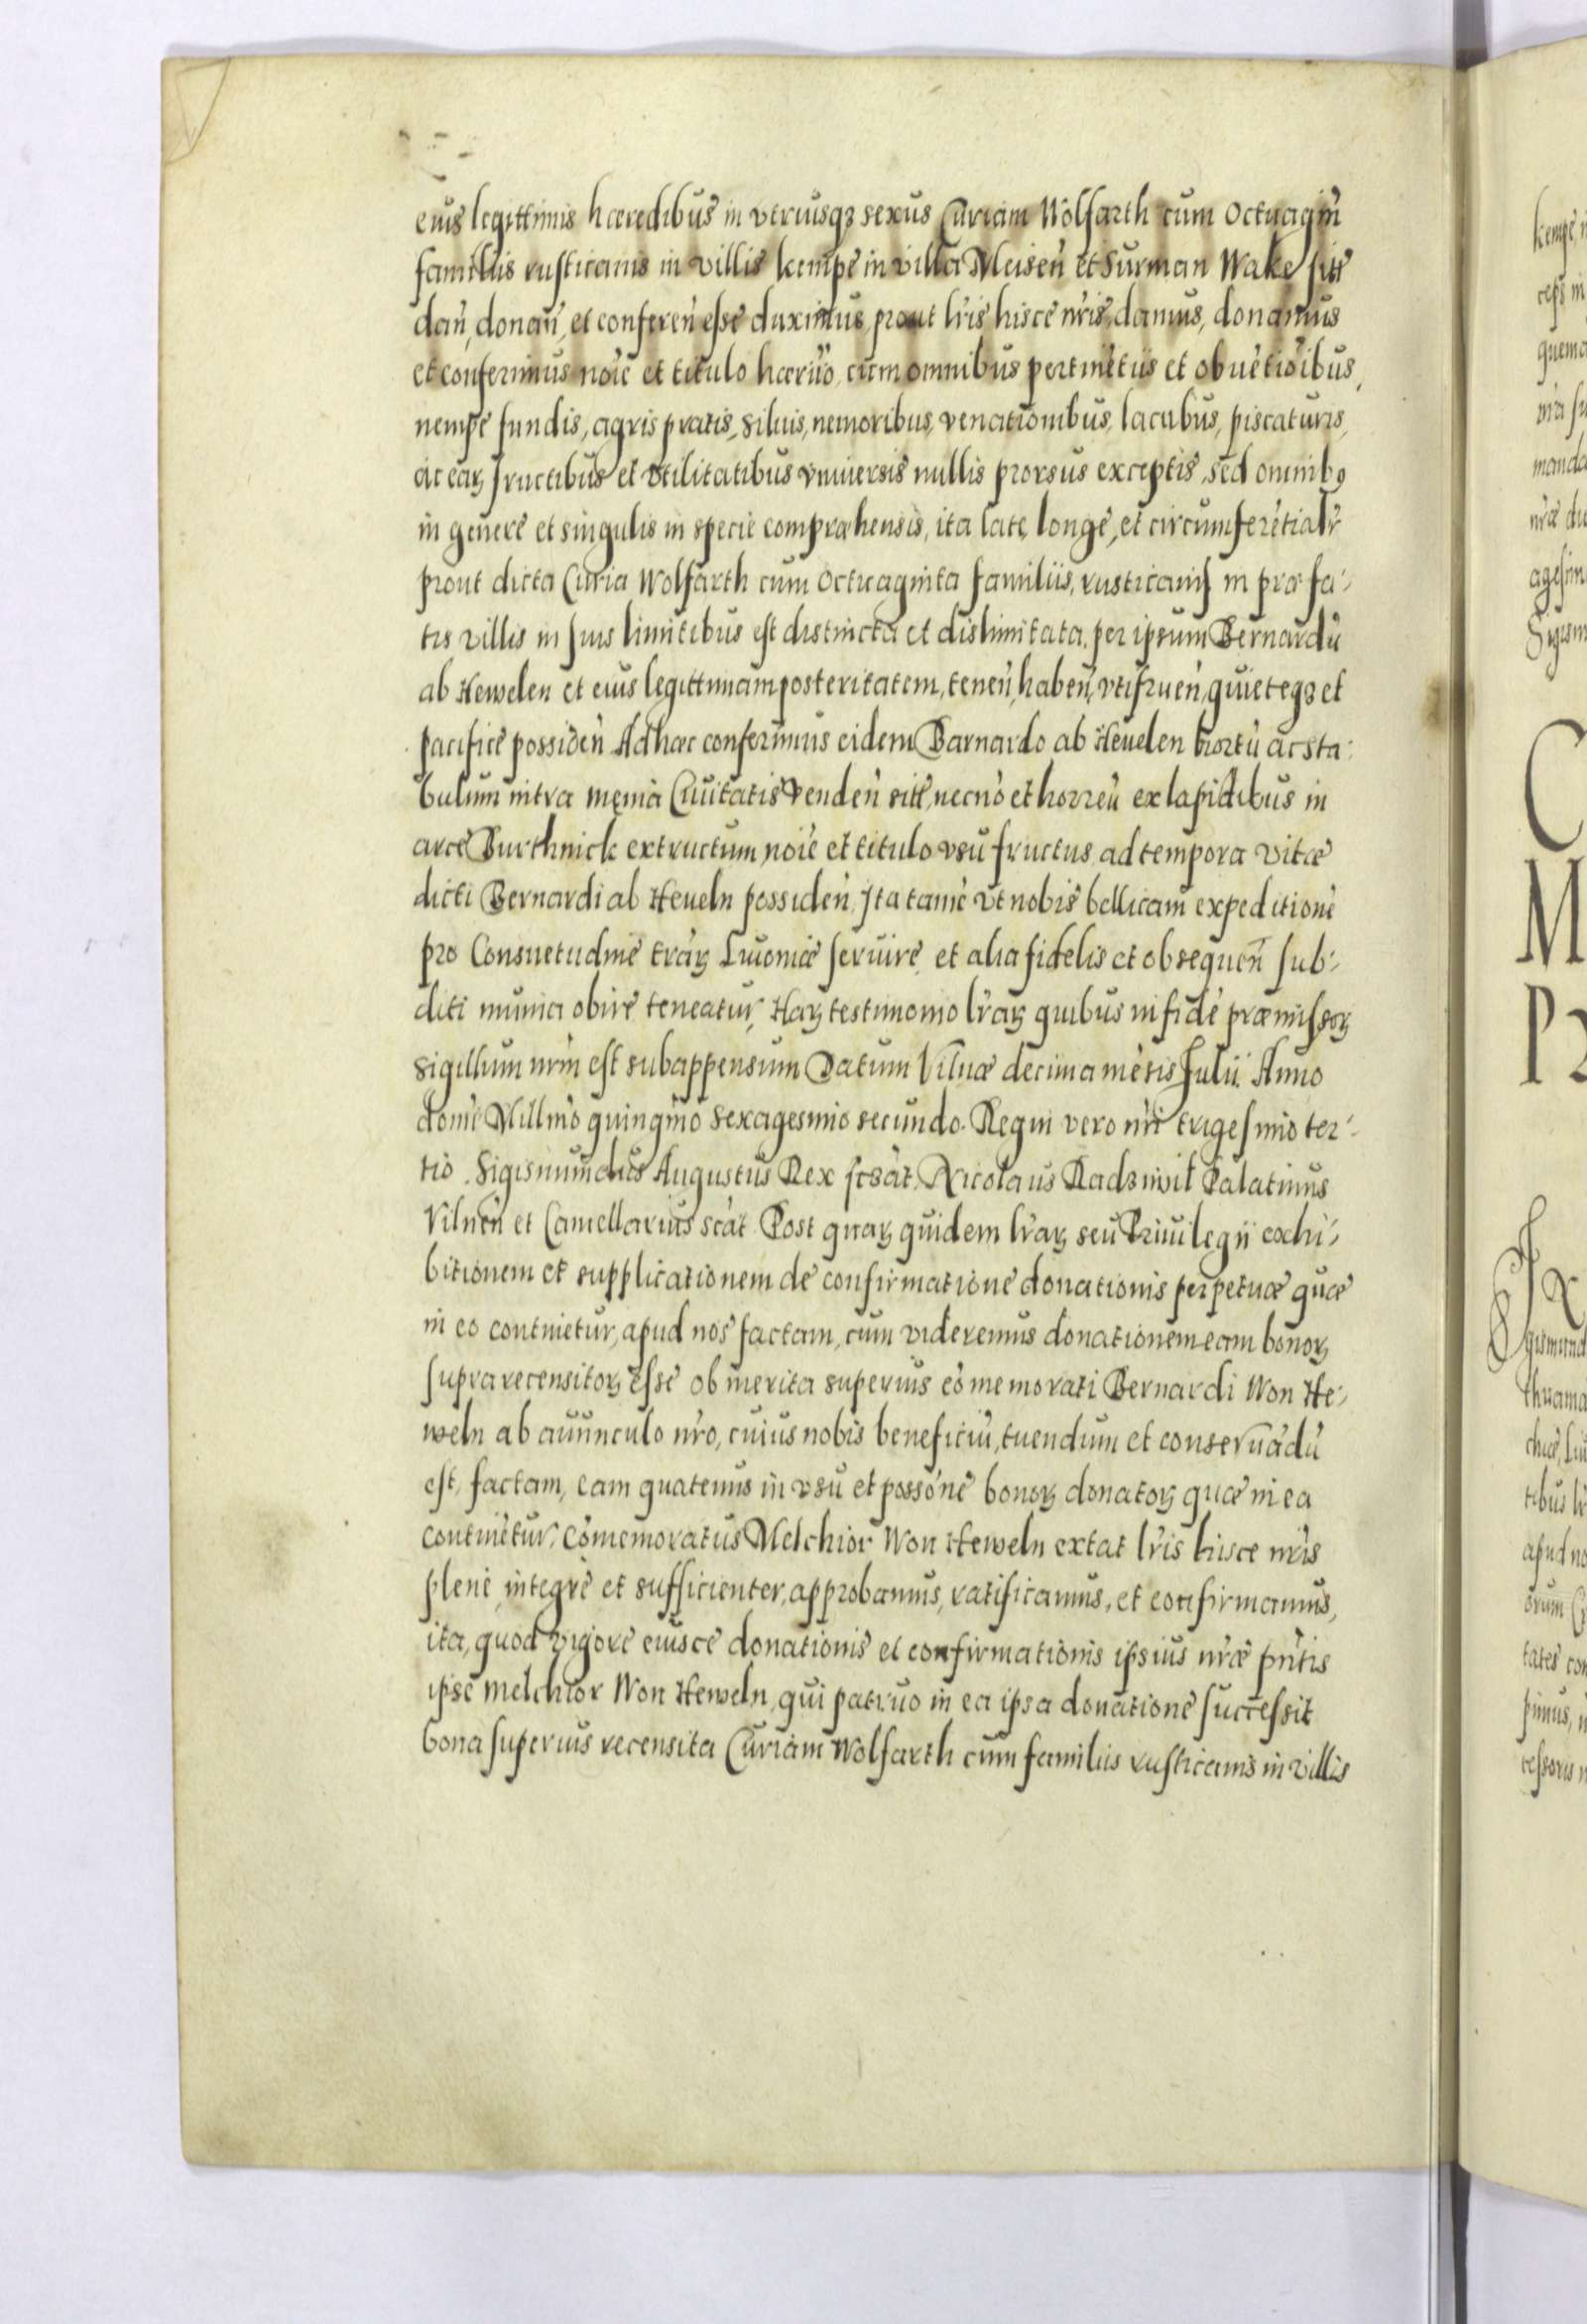 eius legittimis hæredibus in vtriusqꝫ sexus Curiam Wolfarth cum Octuagin̄
familiis rusticanis in villis kempe in villa Meisen̄ et Surman Wake sitt̄
dan̄, donan̄, et conferen̄ esse duximus, prout lr̄is hisce nr̄is, damus, donamus
et conferimus noīe et titulo hæred̄o, cum omnibus pertinētiis et obuētioībus,
nempe fundis, agris pratis, siluis, nemoribus, venationibus, lacubus, piscaturis,
ac eaꝝ fructibus et vtilitatibus vniuersis nullis prorsus exceptis, sed omnibꝰ
in genere et singulis in specie compræhensis, ita late, longe, et circumferētialr̄
prout dicta Curia Wolfarth cum octuaginta familiis, rusticanis in præfa-
tis villis in suis limitibus est distincta et dislimitata, per ipsum Bernardū
ab Hewelen et eius legittimam posteritatem, tenen̄, haben̄, vtifruen̄, quieteqꝫ et
pacifice possiden̄ Ad hæc conferimus eidem Barnardo ab Heuelen hortū ac sta-
bulum intra męnia Ciuitatis Venden̄ sitt̄, necnō et horreū ex lapidibus in
arce Burthnick extructum, noīe et titulo vsufructus, ad tempora vitæ
dicti Bernardi ab Heueln possiden̄, Ita tamē vt nobis bellicam expeditionē
pro Consuetudine trāꝝ Liuoniæ seruire, et alia fidelis et obsequen̄ sub-
diti munia obire teneatur, Haꝝ testimonio lr̄aꝝ quibus in fidē præmissoꝝ
sigillum nr̄m est subappensum Datum Vilnæ decima mēsis Julii. Anno
domī Millm̄o quingm̄o sexagesimo secundo. Regni vero nr̄i trigesimo ter-
tio. Sigismundus Augustus Rex scsāt, Nicolaus Radziwil Palatinus
Vilnen̄ et Cancellarius scāt Post quaꝝ quidem lr̄aꝝ seu Priuilegii exhi-
bitionem et supplicationem de confirmatione donationis perpetuæ quæ
in eo continetur, apud nos factam, cum videremus donationem eam bonoꝝ
supra recensitoꝝ esse ob merita superius cōmemorati Bernardi Won He-
weln ab auunculo nr̄o, cuius nobis beneficiū, tuendum et conseruādū
est, factam, eam quatenus in vsu et possōne bonoꝝ donatoꝝ quæ in ea
continētur, Cōmemoratus Melchior Won Heweln extat lr̄is hisce nr̄is
plene, integre et sufficienter, approbamus, ratificamus, et confirmamus,
ita, quod vigore eiusce donationis et confirmationis ipsius nr̄æ pn̄tis
ipse Melchior Won Heweln, qui patruo in ea ipsa donatione successit
bona superius recensita Curiam Wolfarth cum familiis rusticanis in villis